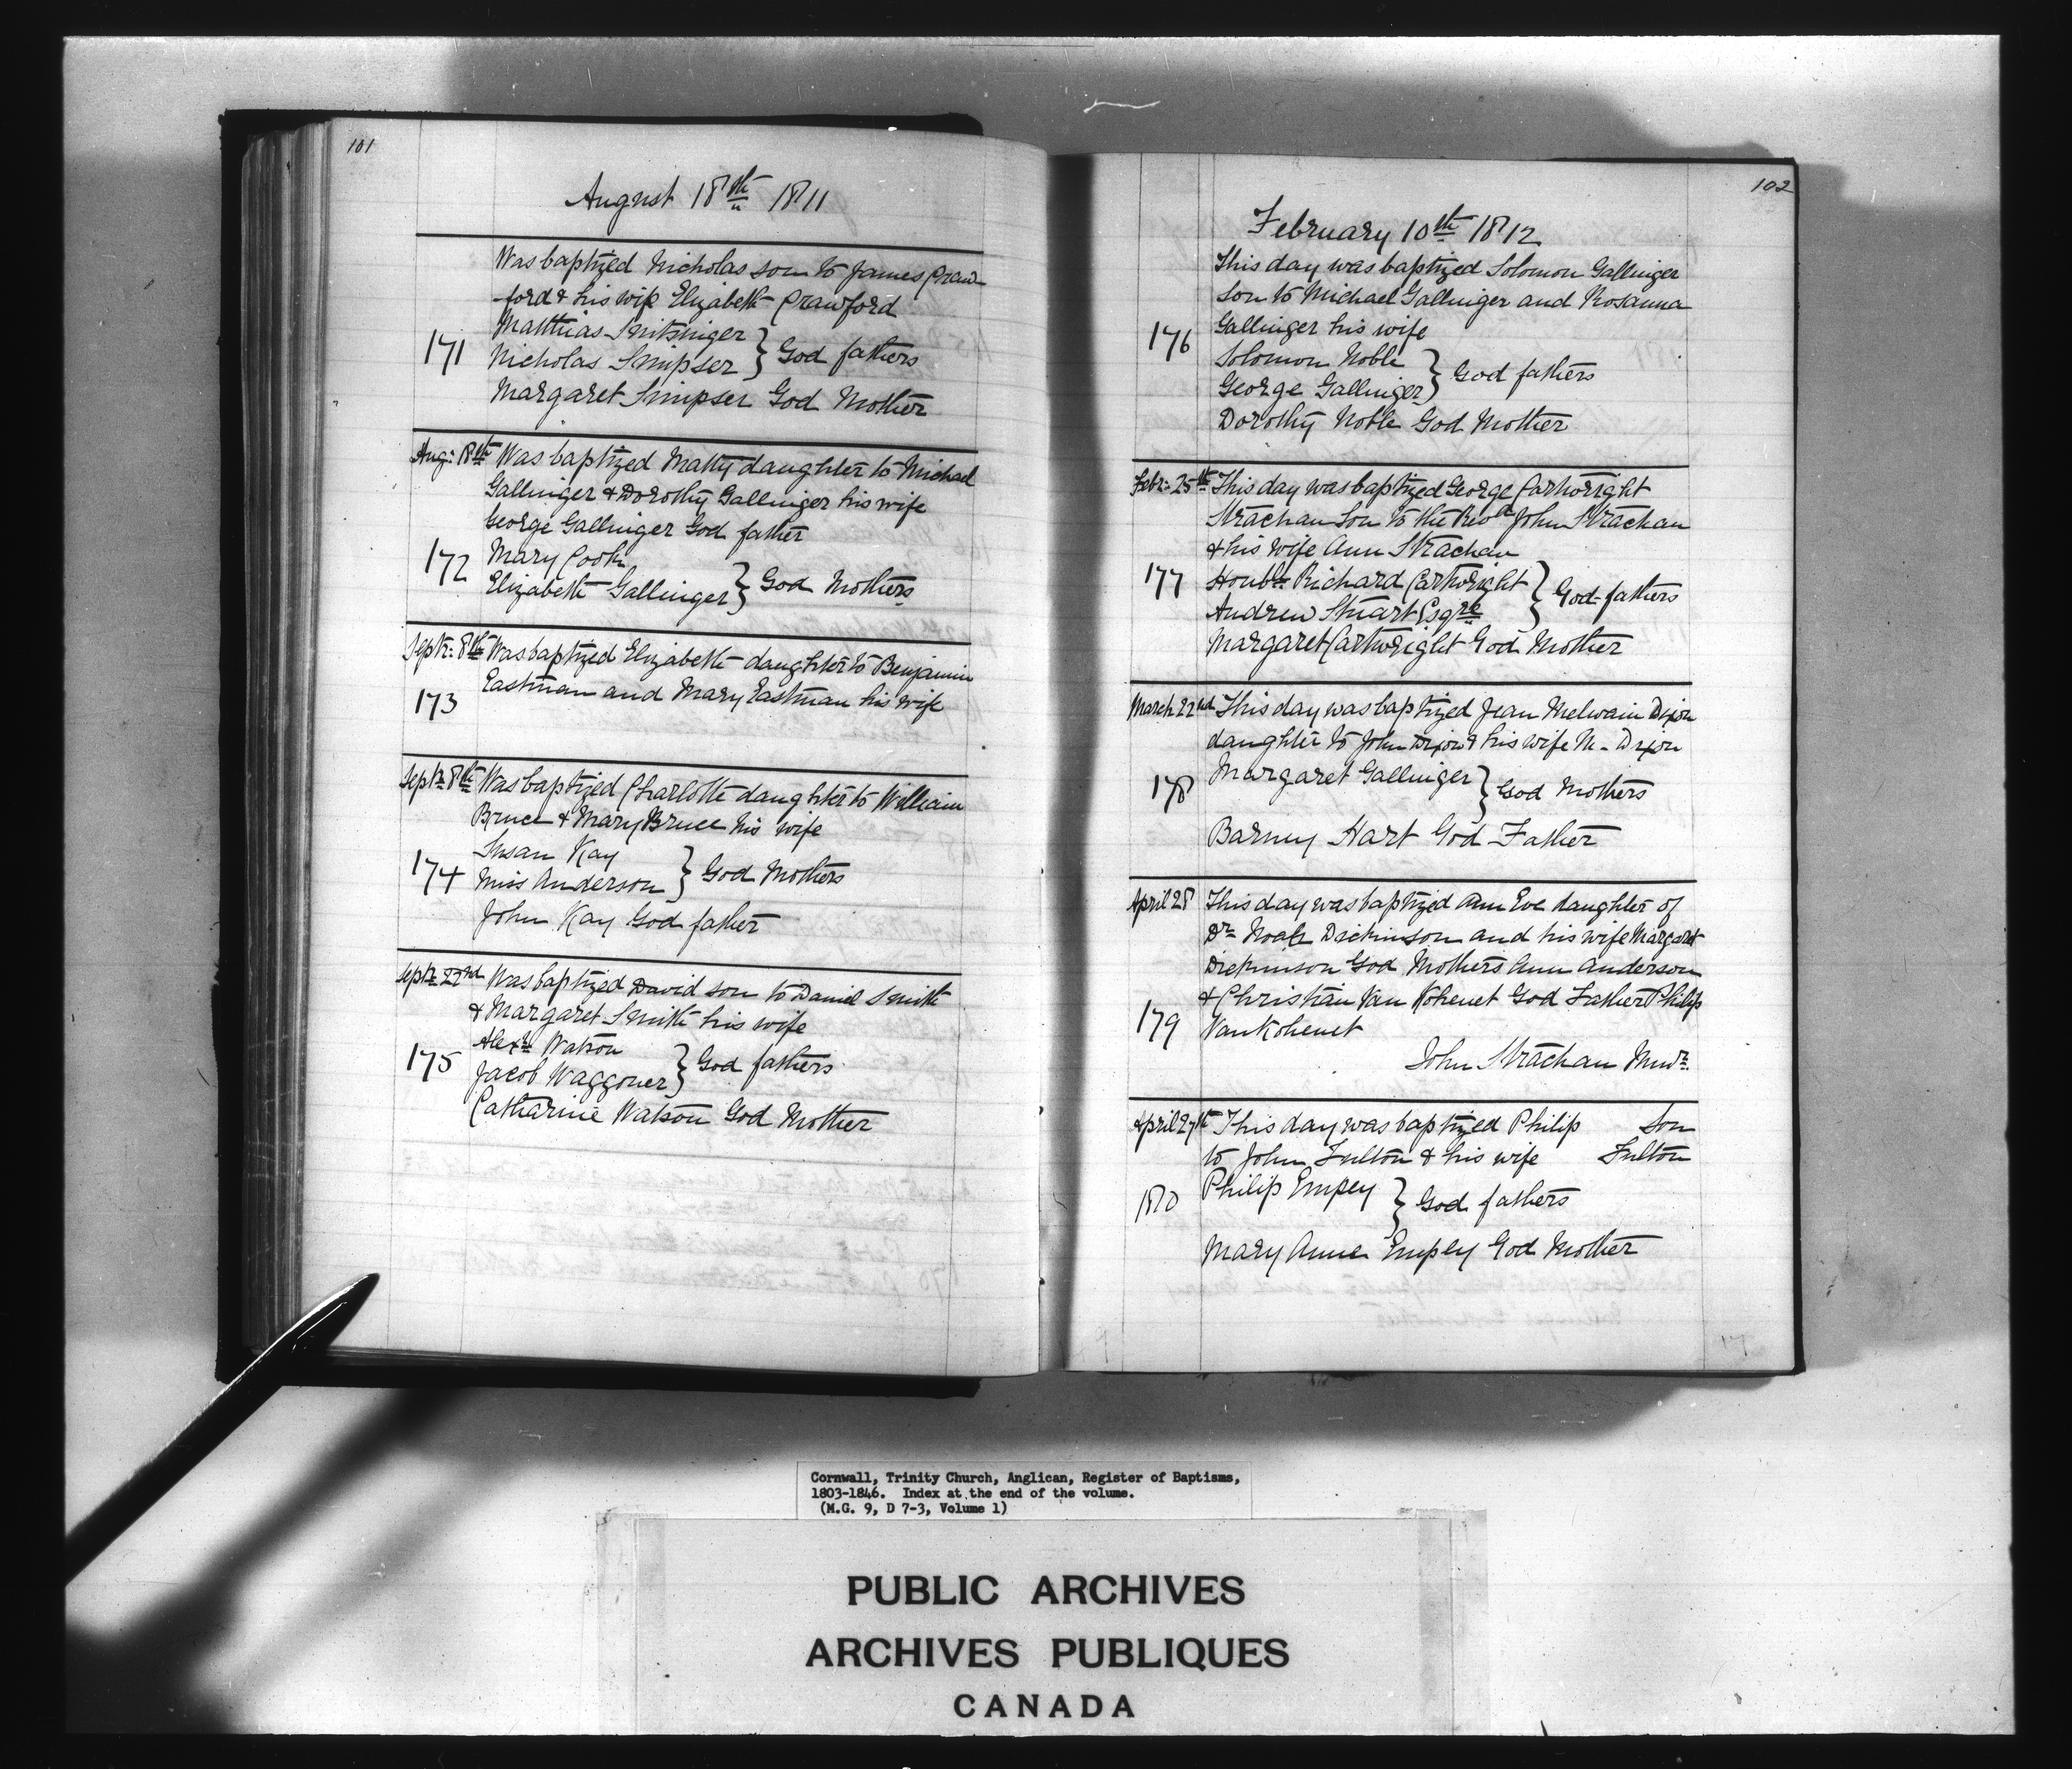 101
August 18th 1811
Was baptized Nicholas son to James Craw-
ford & his wife Elizabeth Crawford
Matthias Snitsinger
171
Nicholas Simpser } God fathers
Margaret Simpser God Mother
Aug: 18th Was baptized Matty daughter to Michael
Gallinger & Dorothy Gallinger his wife
George Gallinger God father
172
Mary Cook
Elizabeth Gallinger } God Mothers
Septr: 8th Was baptized Elizabeth daughter to Benjamin
173
Eastman and Mary Eastman his wife
Septr 8th Was baptized Charlotte daughter to William
Bruce & Mary Bruce his wife
174
Susan Kay
Miss Anderson } God Mothers
John Kay God father
Septr 22nd Was baptized David son to Daniel Smith
& Margaret Smith his wife
175
Alexr Watson
Jacob Waggoner } God fathers
Catharine Watson God Mother
102
February 10th 1812
This day was baptized Solomon Gallinger
son to Michael Gallinger and Rosanna
176
Gallinger his wife
Solomon Noble
George Gallinger } God fathers
Dorothy Noble God Mother
Febr: 25th This day was baptized George Cartwright
Strachan Son to the Revd John Strachan
& his wife Ann Strachan
177
Honble Richard Cartwright
Andrew Stuart Esqre } God-fathers
Margaret Cartwright God Mother
March 22nd This day was baptized Jean Melwain Dixon
daughter to John Dixon & his wife M- Dixon
178
Margaret Gallinger } God Mothers
Barney Hart God Father
April 28 This day was baptized Ann Eve daughter of
Dr Noah Dickinson and his wife Margaret
Dickinson God Mothers Ann Anderson
& Christian Van Kohenet God Father Philip
179
VanKohenet
John Strachan Minr.
April 27th This day was baptized Philip Son
to John Fulton & his wife Fulton
180
Philip Empey } God fathers
Mary Anne Empey God Mother
Cornwall, Trinity Church, Anglican, Register of Baptisms,
1803-1846. Index at the end of the volume.
(M.G. 9, D 7-3, Volume 1)
PUBLIC ARCHIVES
ARCHIVES PUBLIQUES
CANADA